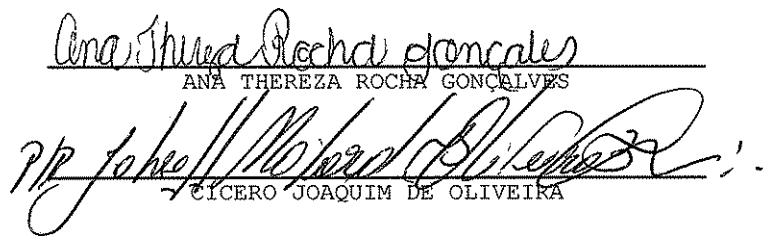 Ana Thereza Rocha Gonçales
ANA THEREZA ROCHA GONÇALVES
P/P
CICERO JOAQUIM DE OLIVEIRA